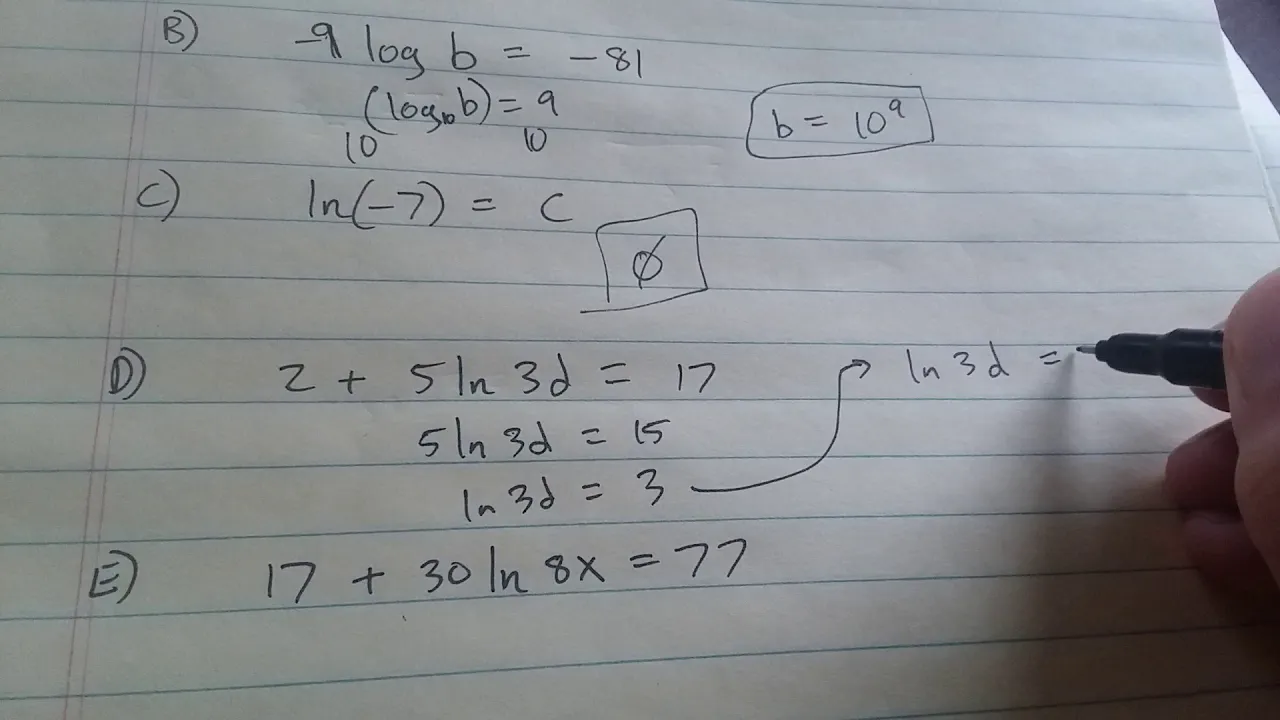 B) -9 log b = -81
(log₁₀b) = 9
10 10
b = 10⁹
C) ln(-7) = C
∅
D) 2 + 5 ln 3d = 17
5 ln 3d = 15
ln 3d = 3
ln 3d =
E) 17 + 30 ln 8x = 77